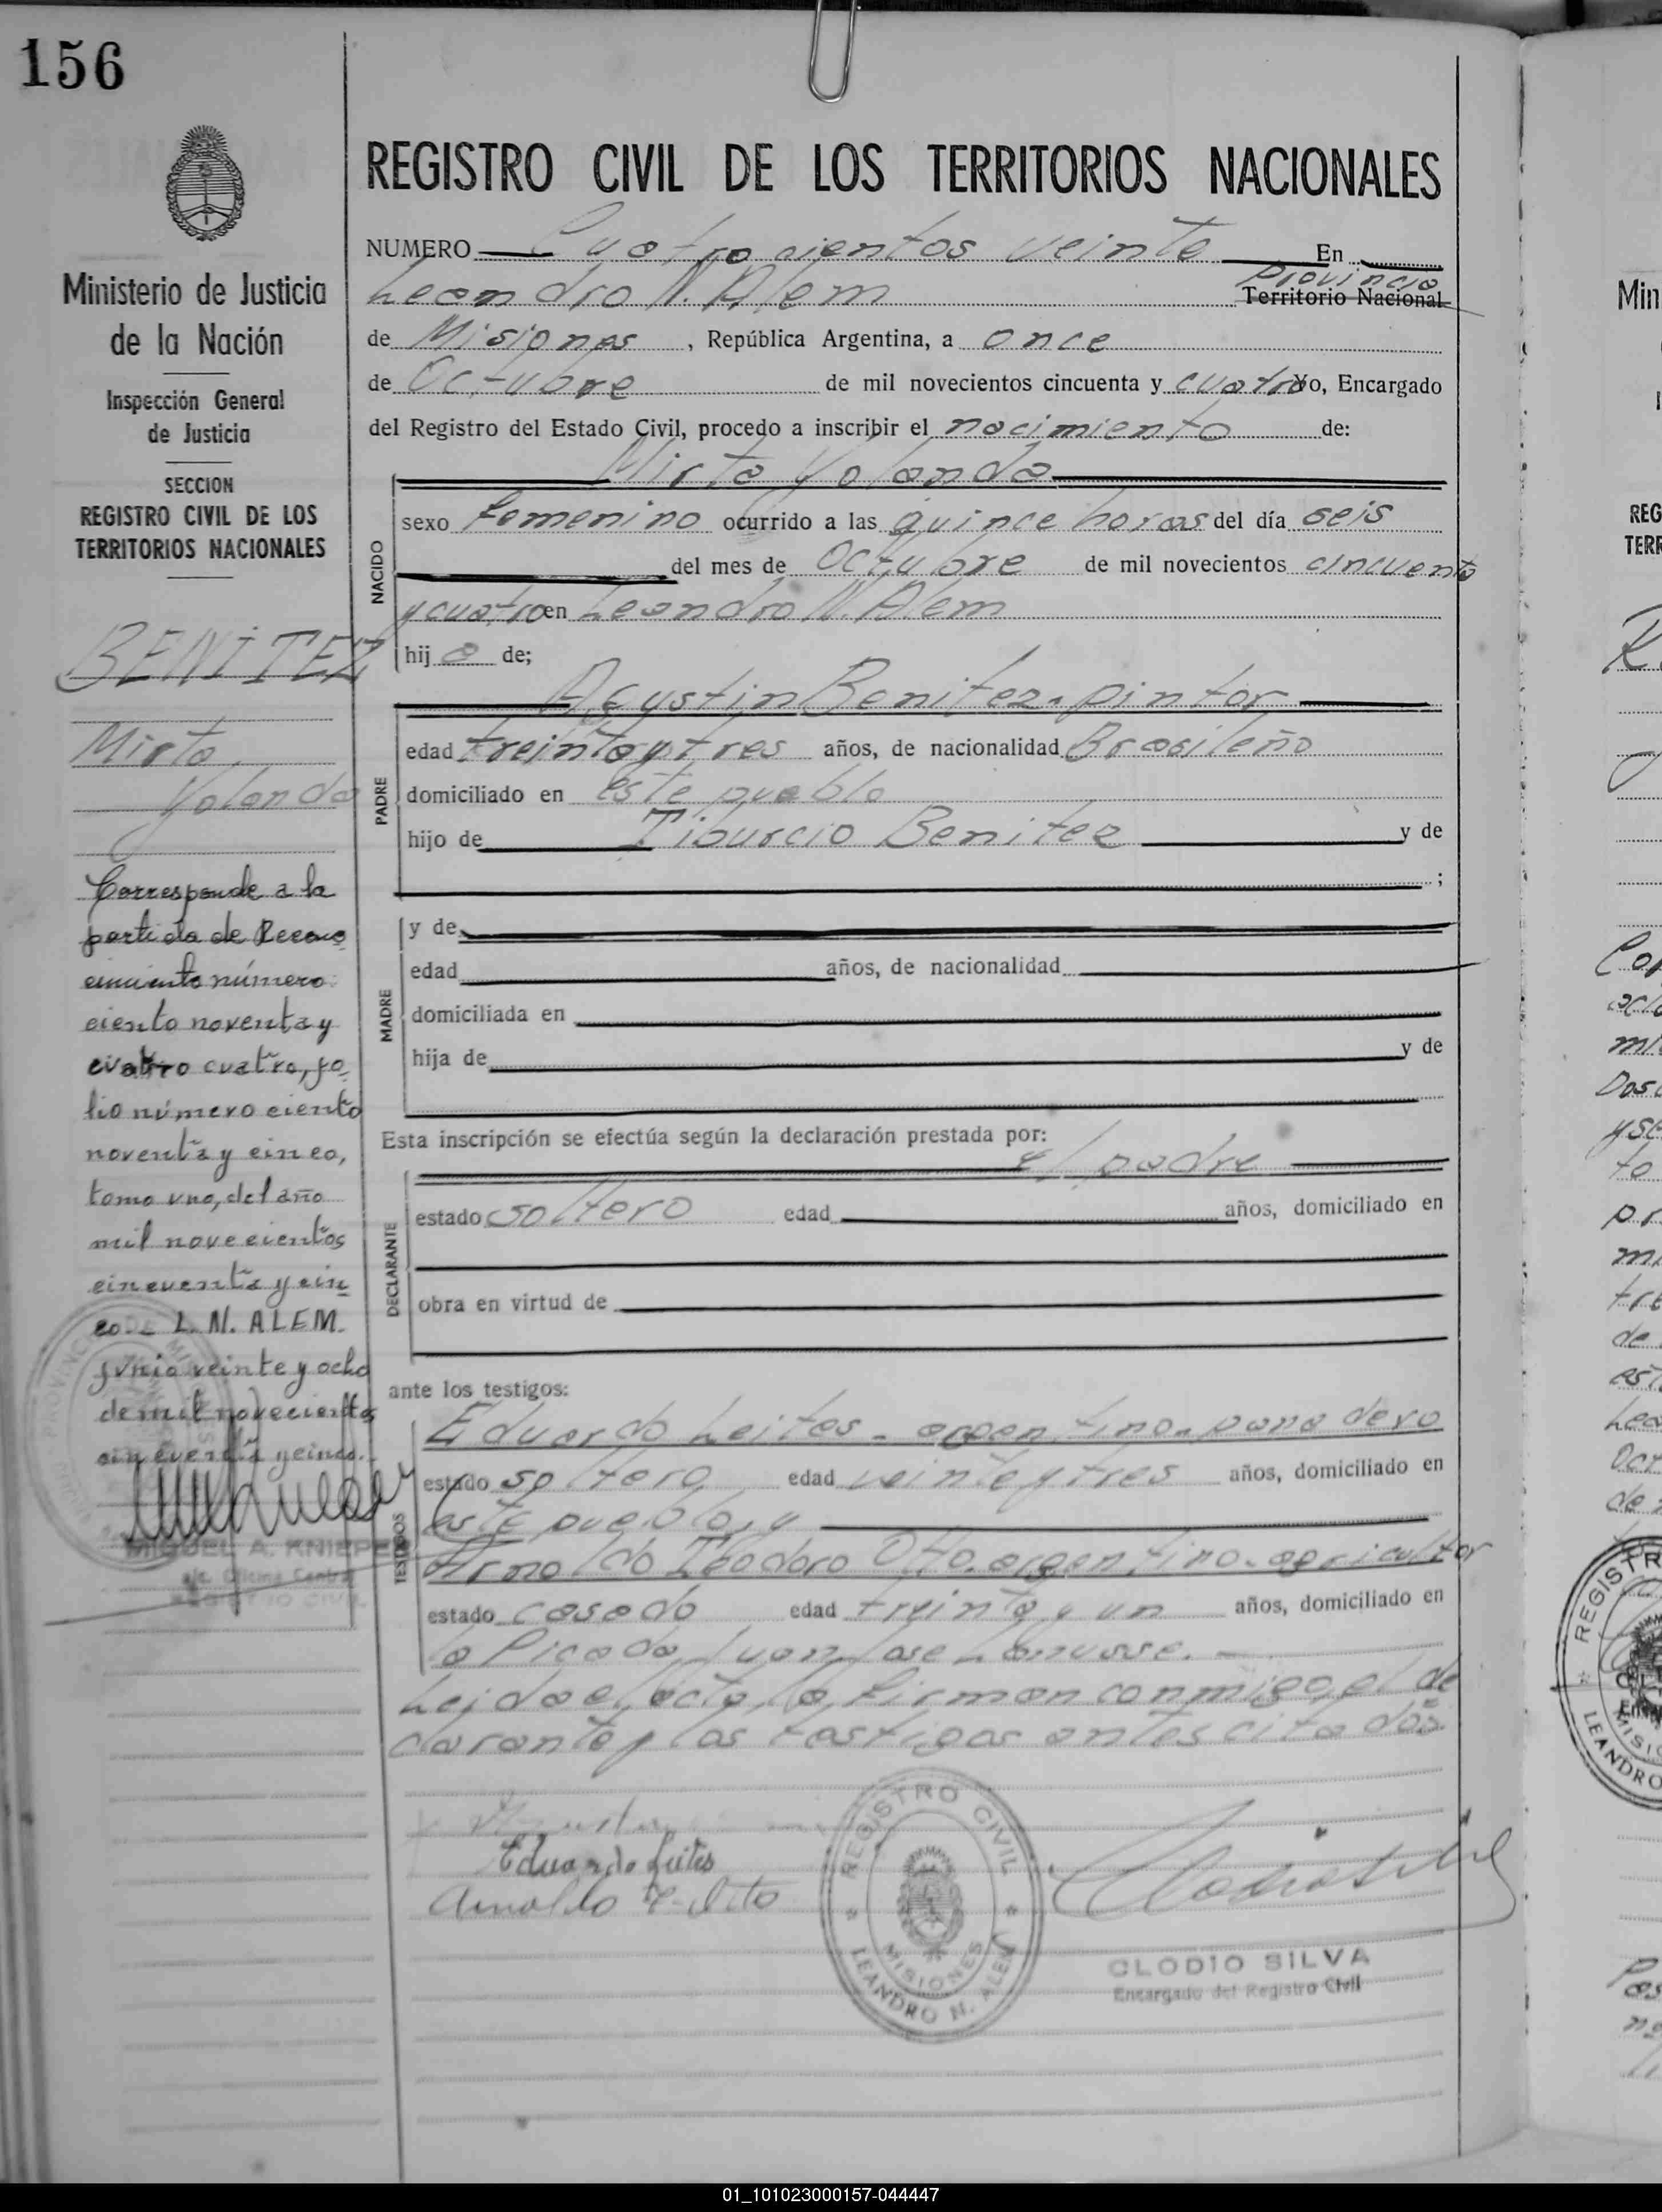 156
REGISTRO CIVIL DE LOS TERRITORIOS NACIONALES
Ministerio de Justicia
de la Nación
Inspección General
de Justicia
SECCION
REGISTRO CIVIL DE LOS
TERRITORIOS NACIONALES
BENITEZ
Mirta
Yolanda
Corresponde a la
partida de Recono
cimiento número
ciento noventa y
cuatro cuatro, fo
lio número ciento
noventa y cinco,
tomo uno, del año
mil novecientos
cincuenta y cin
co. L. N. ALEM.
junio veinte y ocho
de mil novecientos
cincuenta y cinco.
MIGUEL A. KNIEPE
NUMERO Cuatrocientos veinte En
Leandro N. Alem Provincia Territorio Nacional
de Misiones, República Argentina, a once
de Octubre de mil novecientos cincuenta y cuatro Yo, Encargado
del Registro del Estado Civil, procedo a inscribir el nacimiento de:
Mirta Yolanda
NACIDO
sexo femenino ocurrido a las quince horas del día seis
del mes de Octubre de mil novecientos cincuenta
y cuatro en Leandro N. Alem
hija de;
Agustin Benitez. pintor
PADRE
edad treinta y tres años, de nacionalidad Brasileño
domiciliado en este pueblo
hijo de Tiburcio Benitez y de
;
MADRE
y de
edad años, de nacionalidad
domiciliada en
hija de y de
Esta inscripción se efectúa según la declaración prestada por:
el padre
DECLARANTE
estado soltero edad años, domiciliado en
obra en virtud de
ante los testigos:
TESTIGOS
Eduardo Leites - argentino - panadero
estado soltero edad veinte y tres años, domiciliado en
este pueblo, y
Arnoldo Theodoro Otto. argentino. agricultor
estado casado edad treinta y un años, domiciliado en
la Picada Juan Jose Lanusse.
Leida el acta, la firman conmigo, el de
clarante y los testigos antes citados
Eduardo Leites
Arnoldo T. Otto
REGISTRO CIVIL
MISIONES
LEANDRO N. ALEM
CLODIO SILVA
Encargado del Registro Civil
01_101023000157-044447